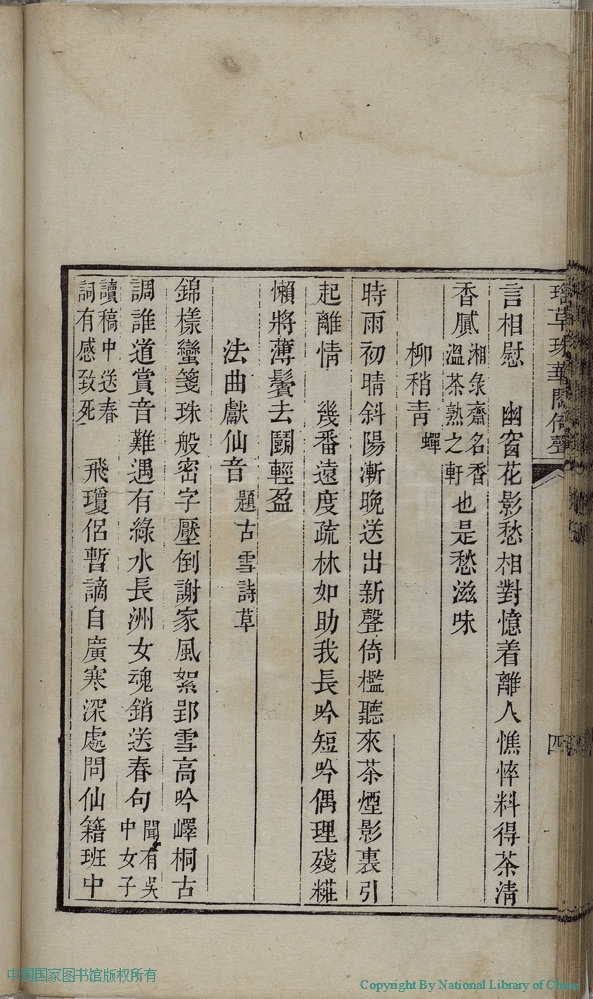 言相慰　幽窗花影愁相對憶着離人憔悴料得茶清
香膩湘彔齋名香溫茶熟之軒也是愁滋味
柳稍靑蟬
時雨初晴斜陽漸晚送出新聲倚檻聽來茶煙影裏引
起離情　幾番遠度疏林如助我長吟短吟偶理殘糚
懶將薄鬢去鬭輕盈
法曲獻仙音題古雪詩草
錦樣蠻箋珠般密字壓倒謝家風絮郢雪高吟嶧桐古
調誰道賞音難遇有綠水長洲女魂銷送春句聞有吳中女子
讀稿中送春詞有感致死　飛瓊侶暫謫自廣寒深處問仙籍班中
中国国家图书馆版权所有
Copyright By National Library of China